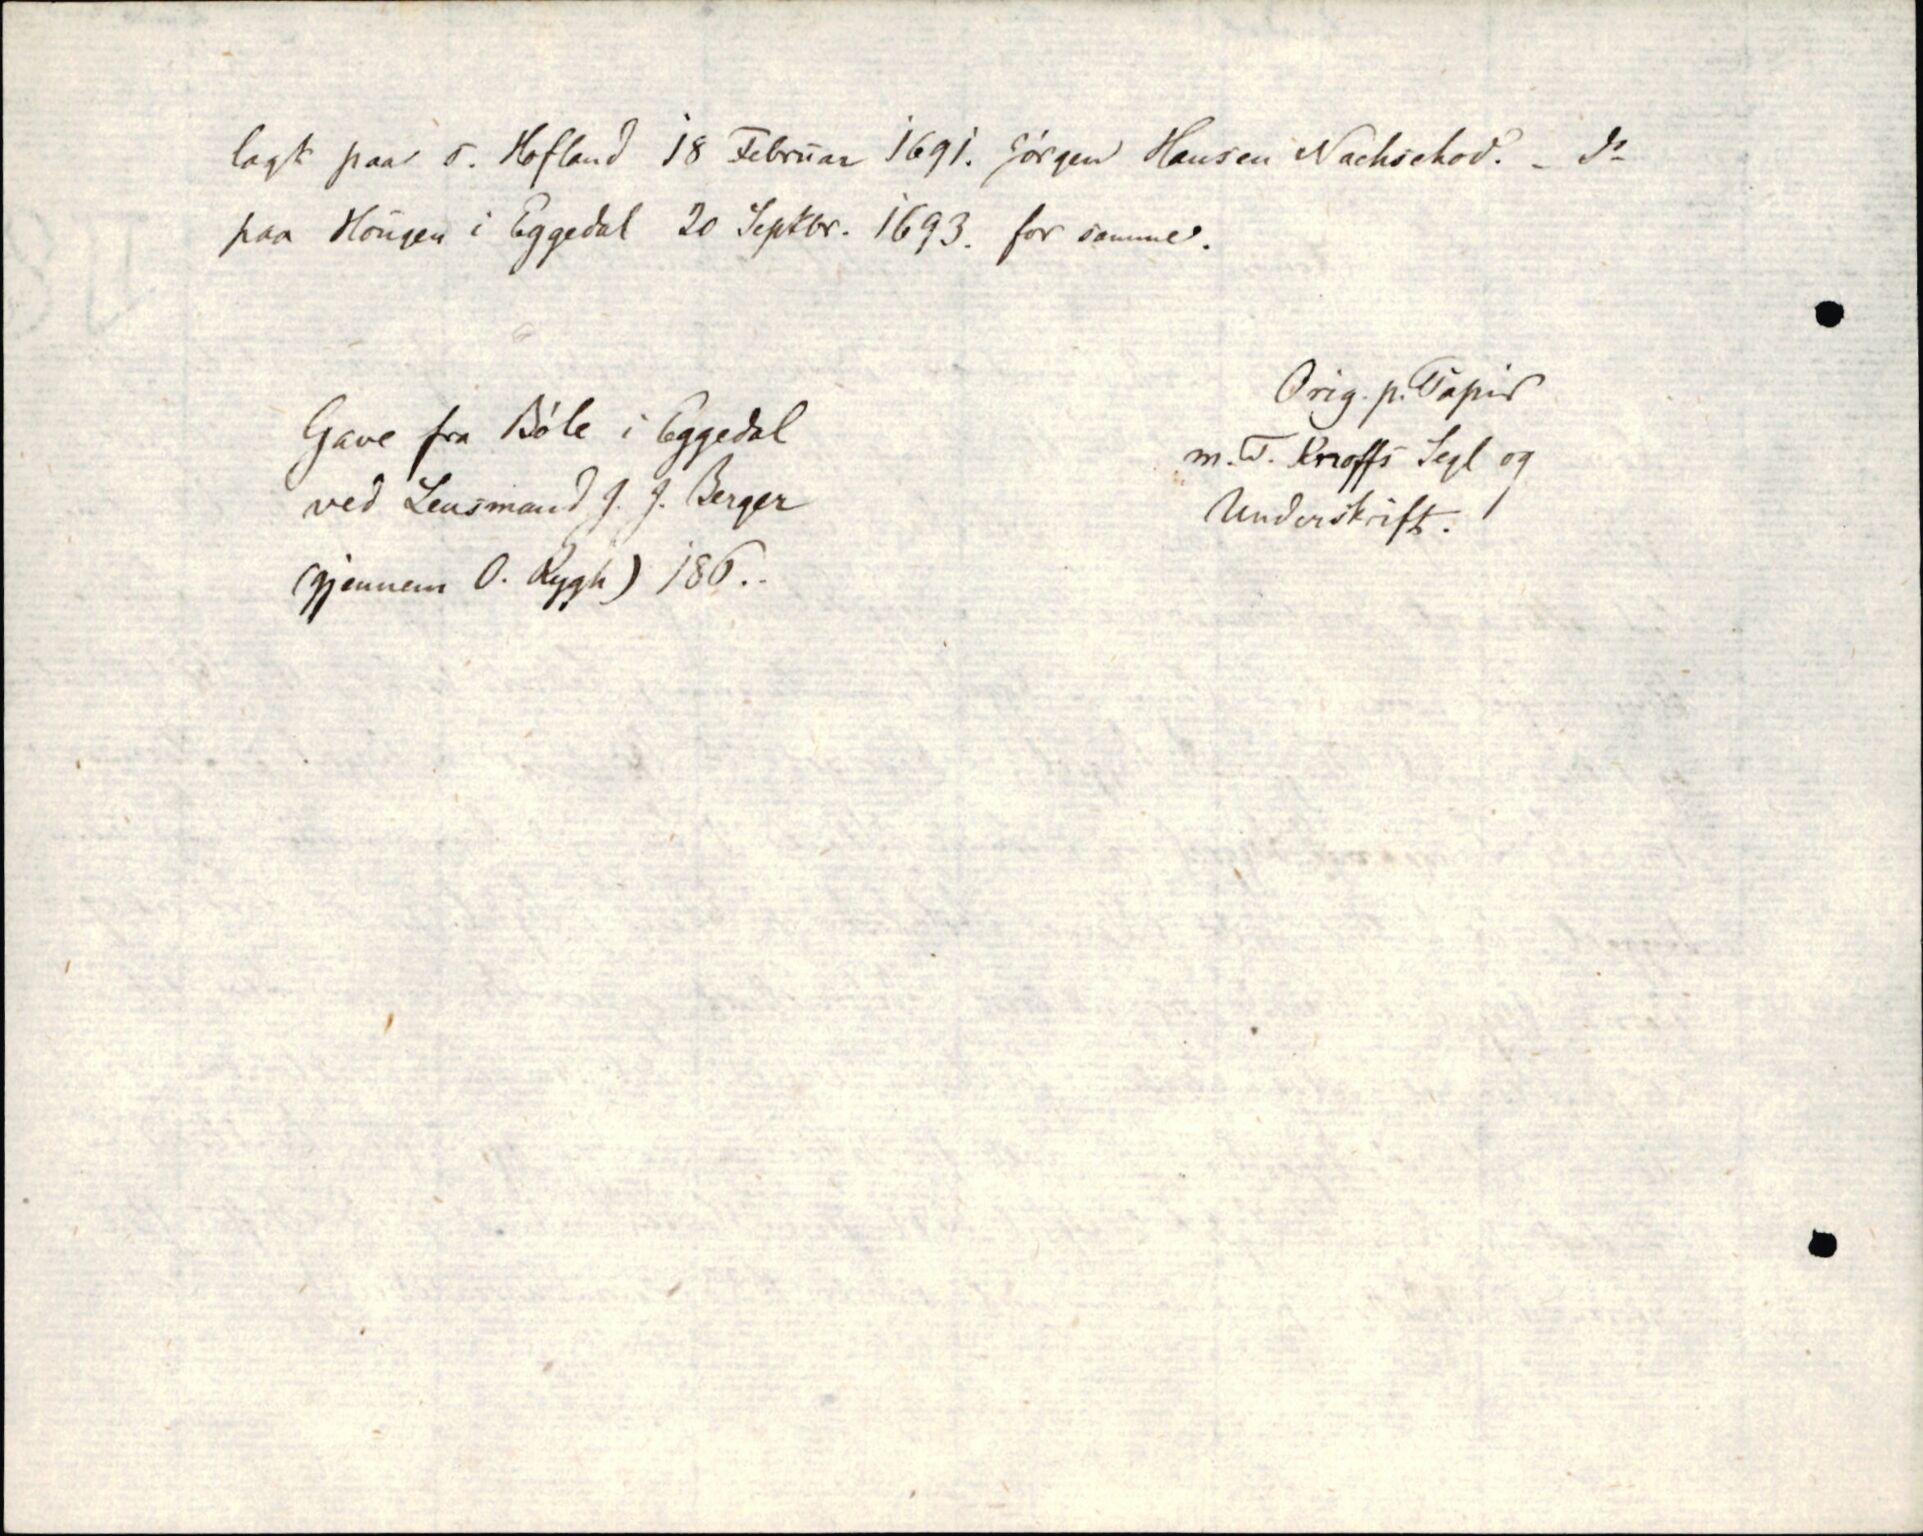 lagt paa s. Hofland 18 Februar 1691. Jørgen Hansen Nachschod. - Do
paa Hougen i Eggedal 20 Septbr. 1693. for samme.
Gave fra Bøle i Eggedal
ved Lensmand J. J. Berger
(gjennem O. Rygh) 186..
Orig. p. Papir
m. T. Knoffs Segl og
Underskrift.